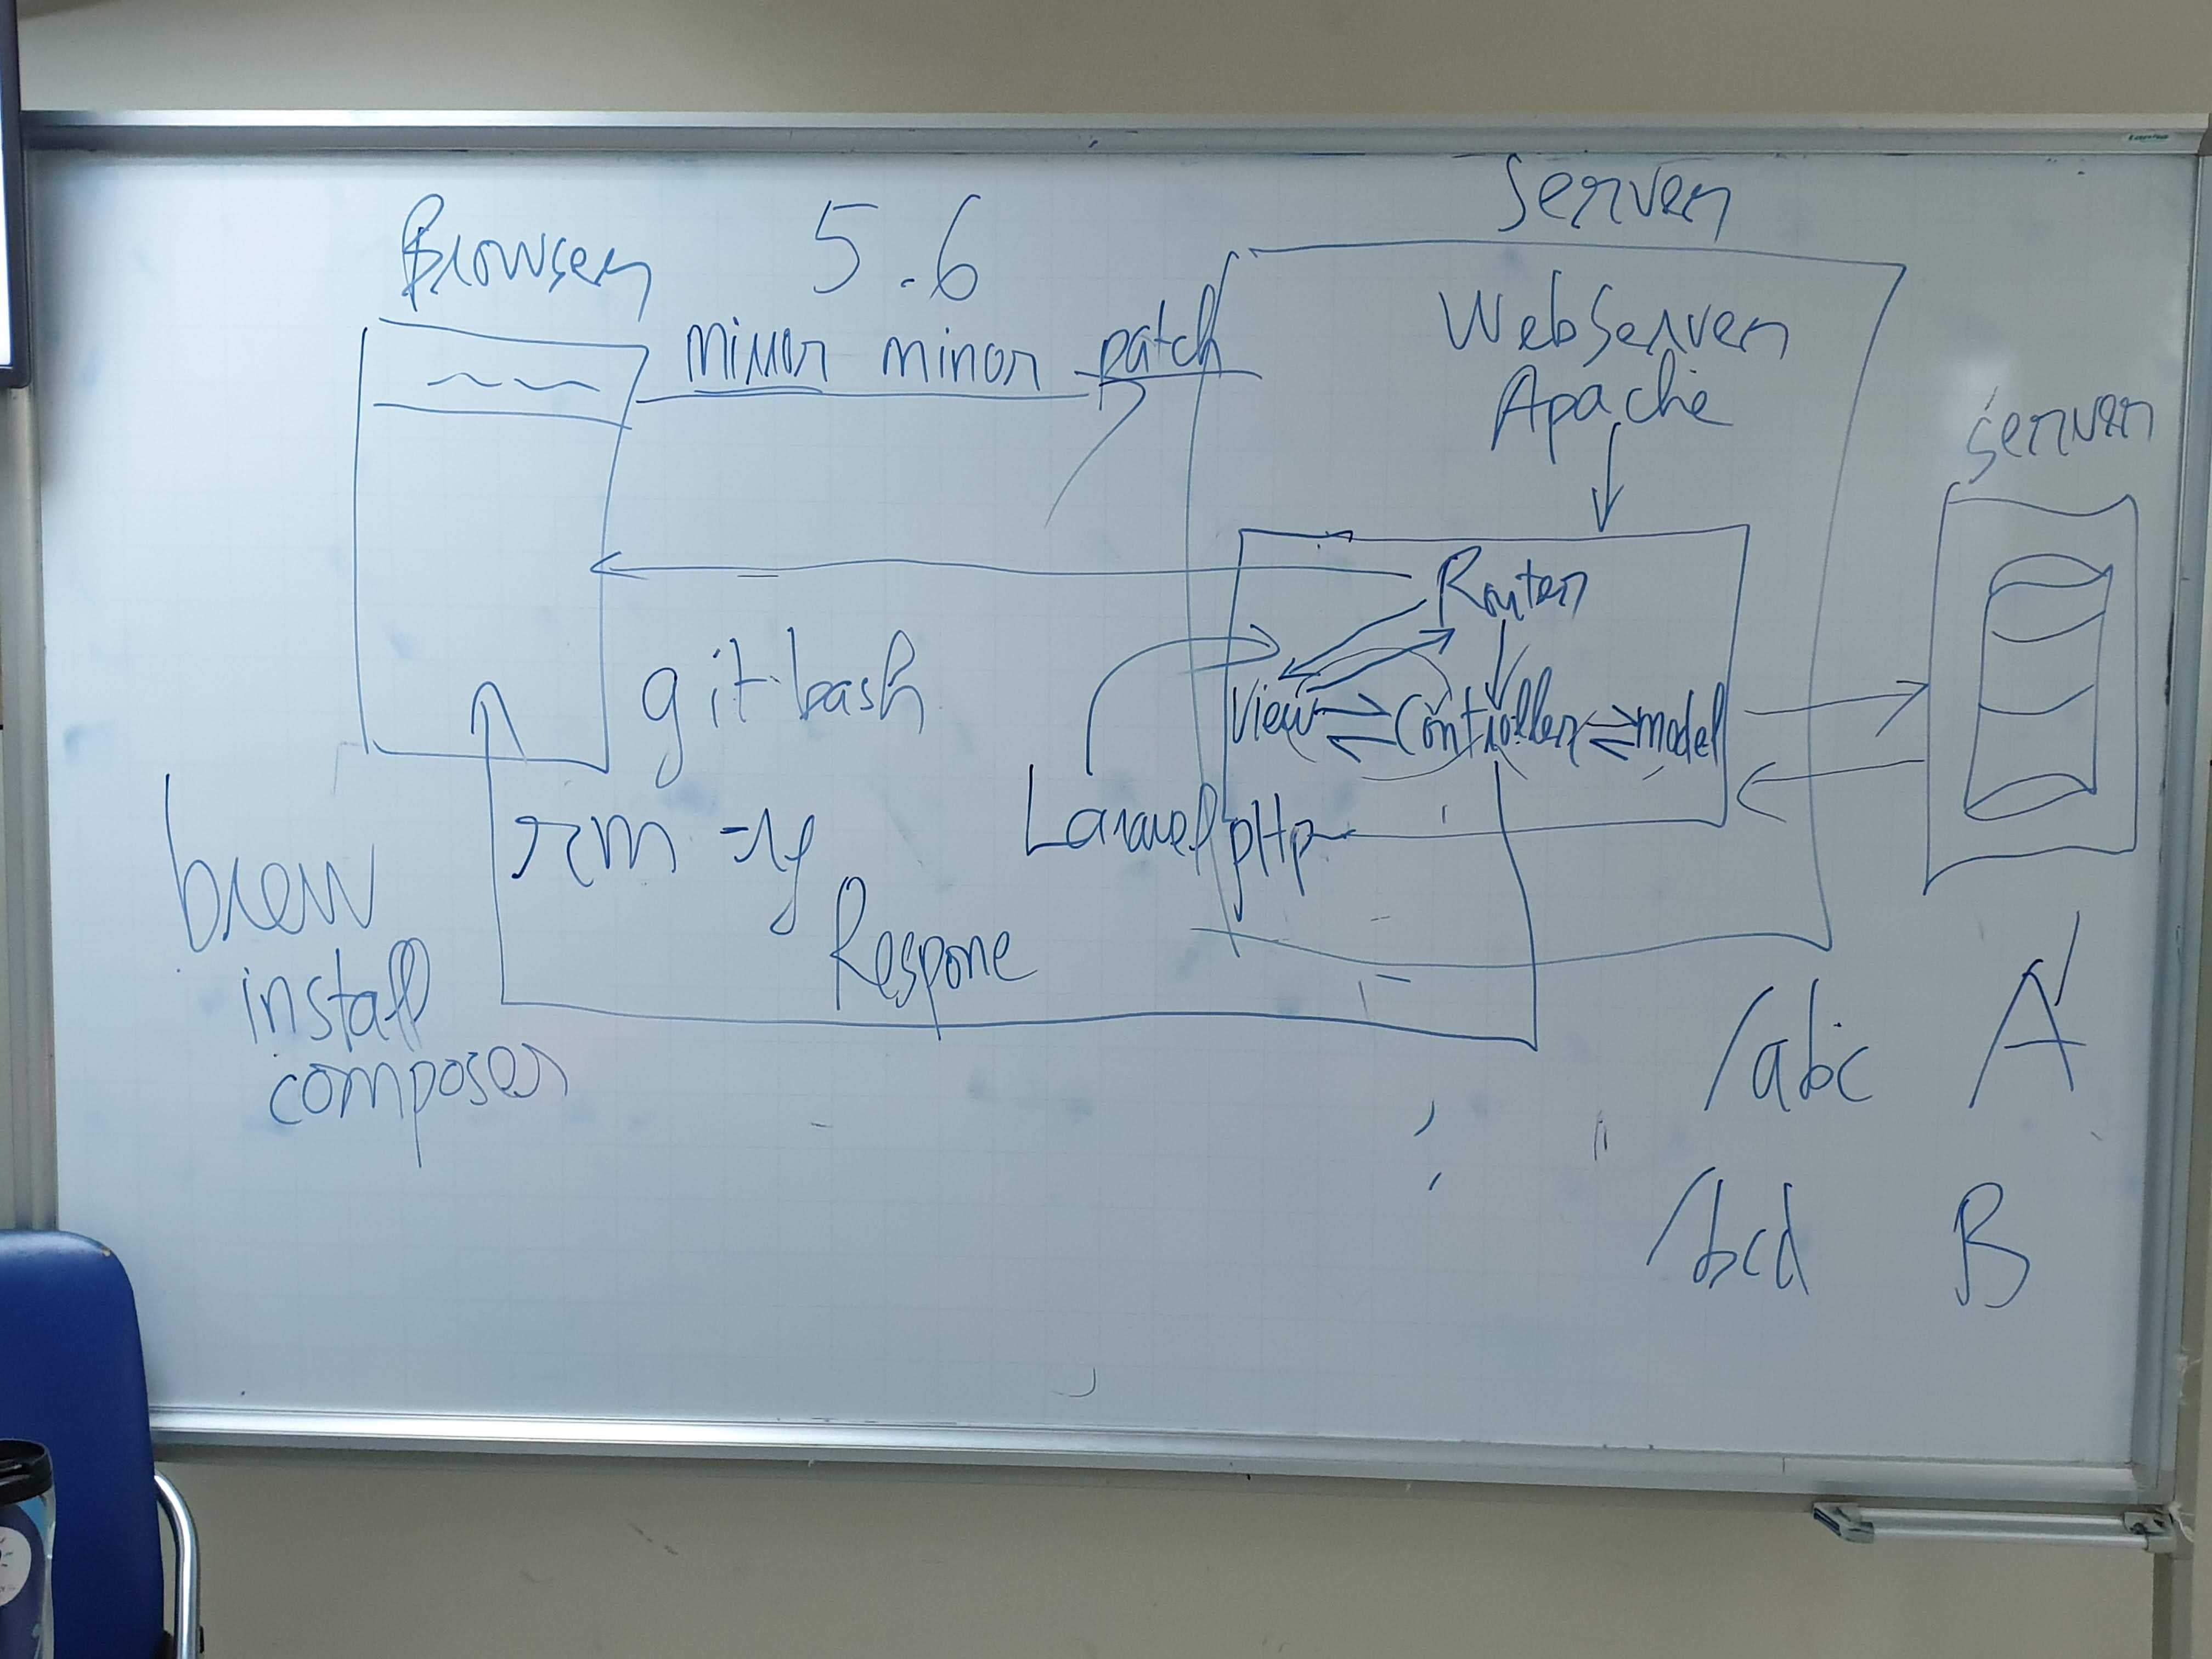 Browser
5.6
Server
minor minor patch
WebServer
Apache
server
Router
git bash
View
Controller
model
Laravel
pHp
rm -rf
brew
install
composer
Respone
/abc A
/bcd B